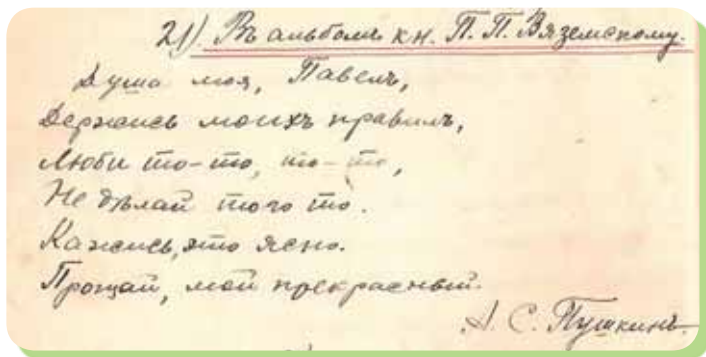 21). Въ альбомъ кн. П. П. Вяземскому.
Душа моя, Павелъ,
Держись моихъ правилъ,
Люби то-то, то-то,
Не дѣлай того то.
Кажись, это ясно.
Прощай, мой прекрасный.
А. С. Пушкинъ.